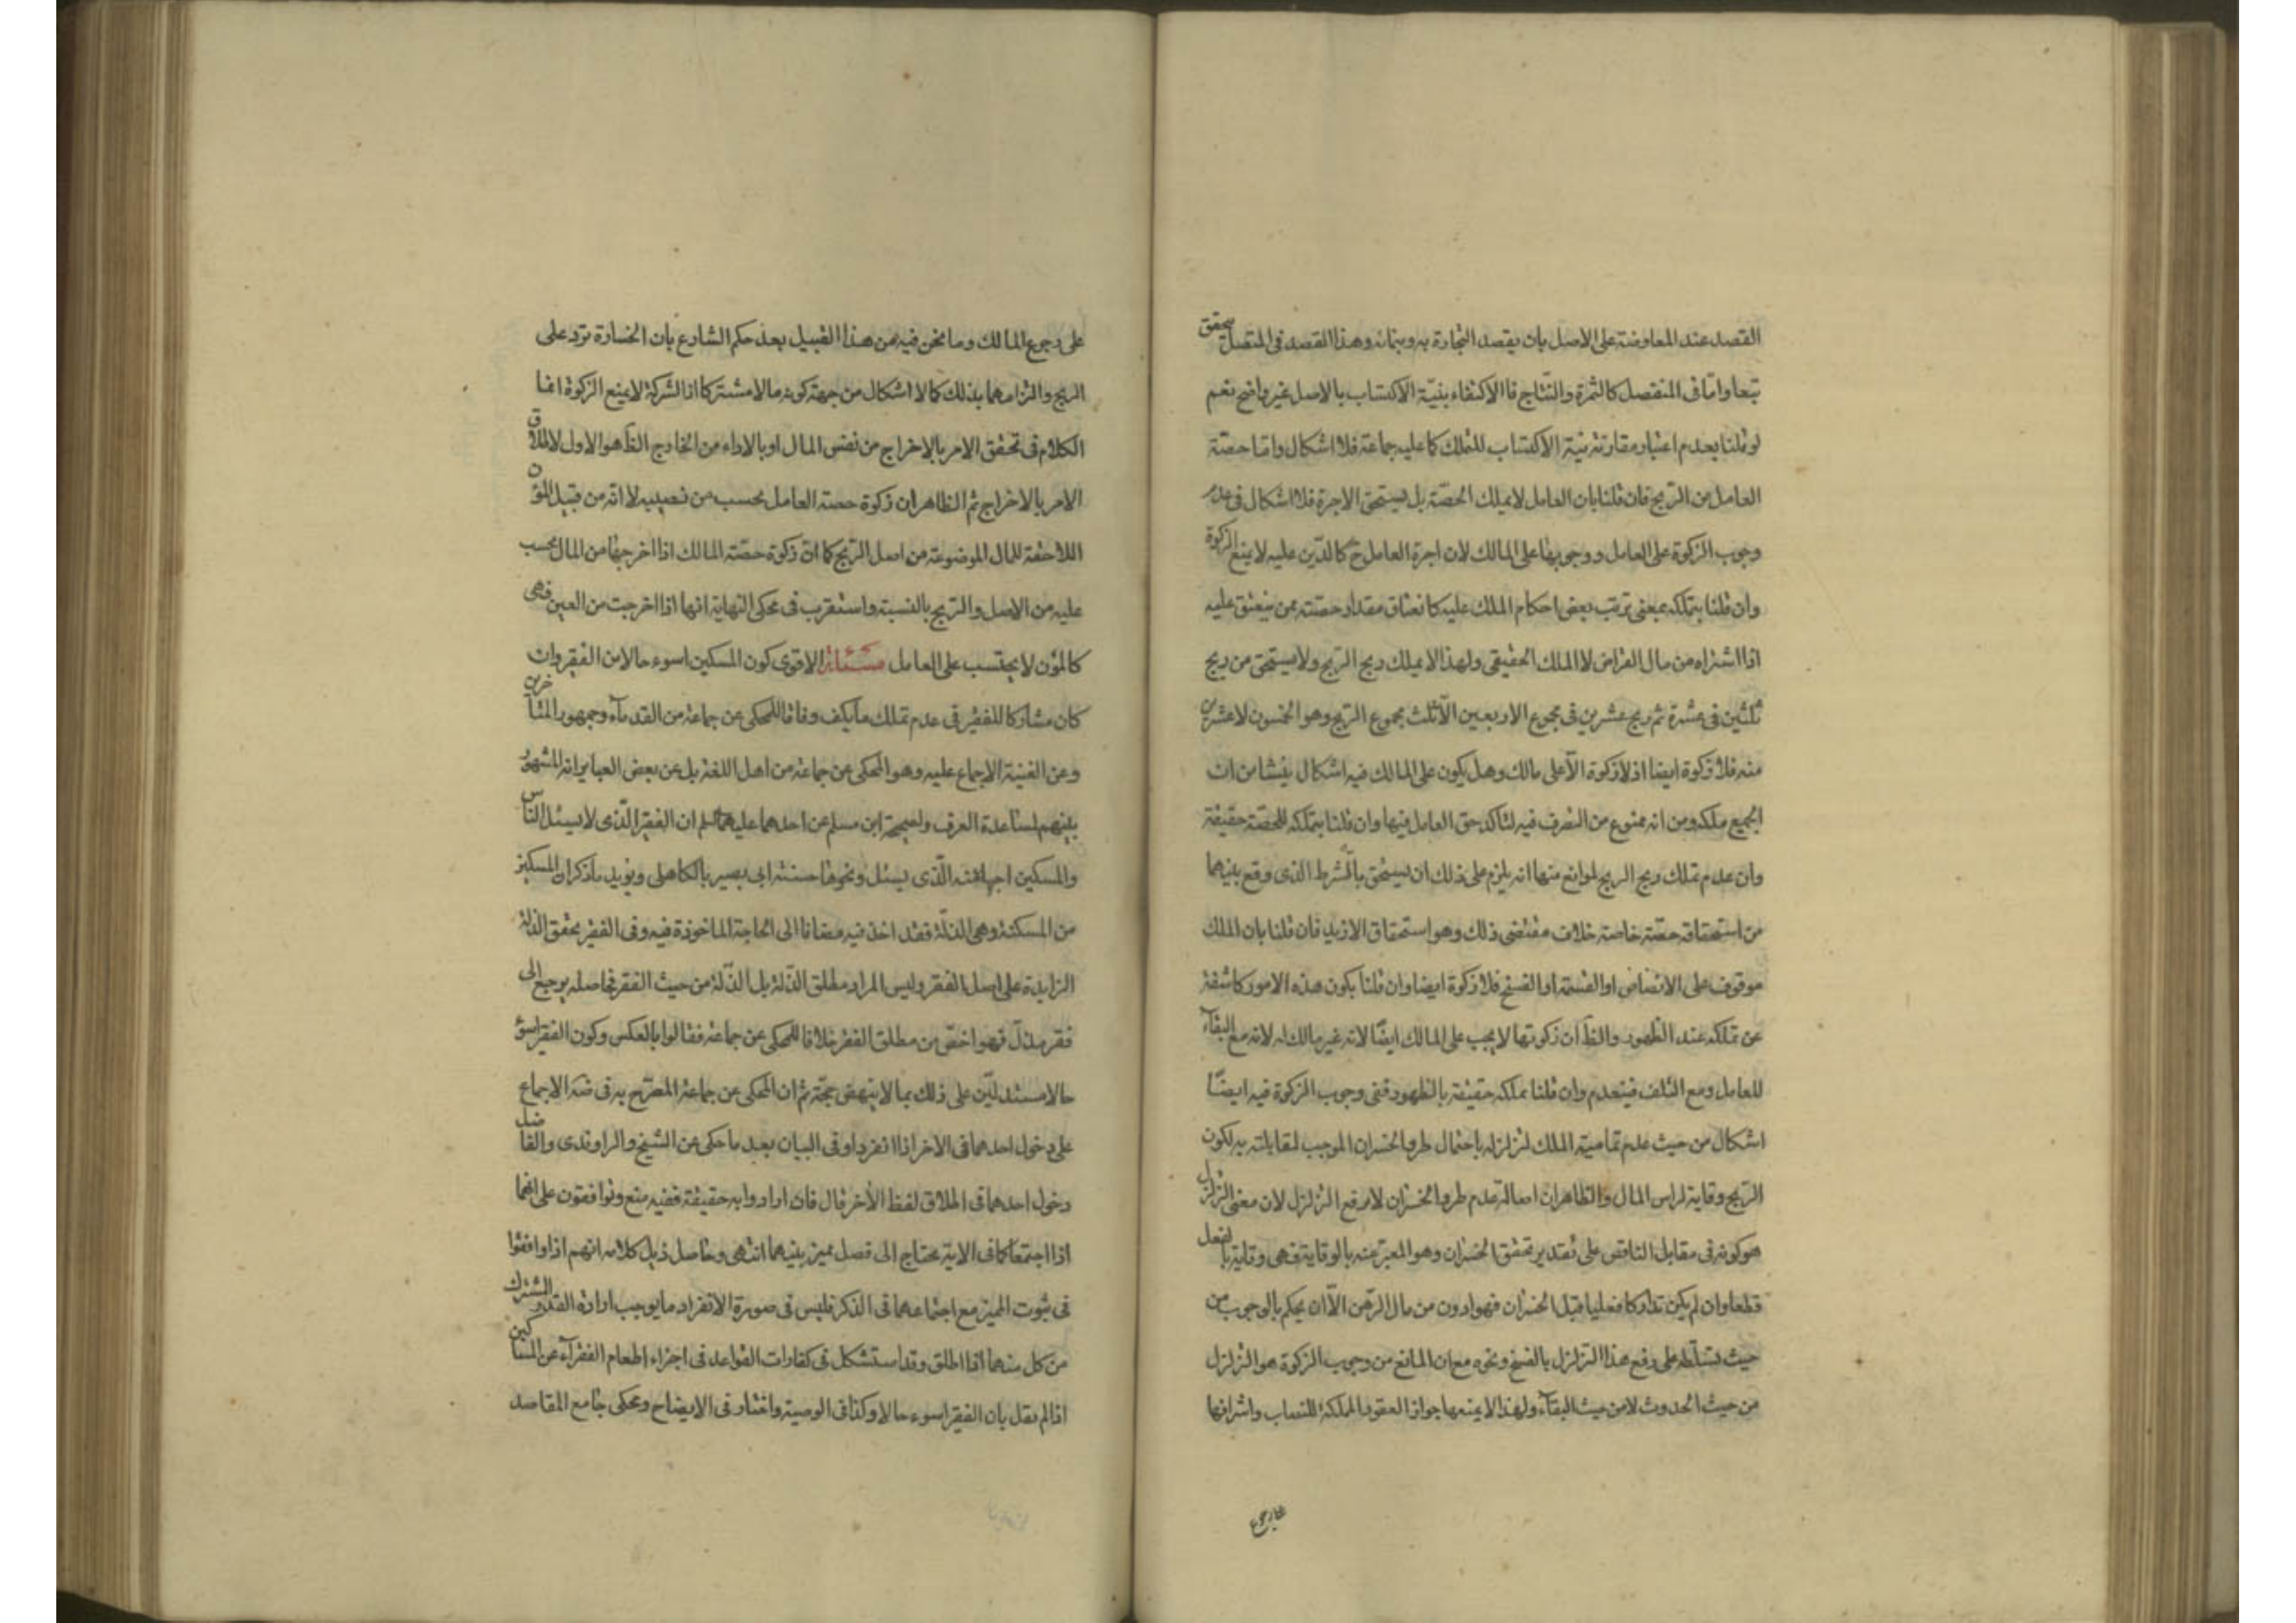 القصد عند المعاوضة على الاصل بان يقصد التجارة به وبنمائه وهذا القصد فى المتصل يتحقق
تبعا واما فى المنفصل كالثمرة والنتاج فا الاكتفاء بنيّة الاكتساب بالاصل غير واضح نعم
لو قلنا بعدم اعتبار مقارنة نية الاكتساب للتملك كما عليه جماعة فلا اشكال واما حصّة
العامل من الربح فان قلنا بان العامل لا يملك الحصّة بل يستحق الاجرة فلا اشكال فى عدم
وجوب الزكوة على العامل ووجوبها على المالك لان اجرة العامل ح كالدّين عليه لا يمنع الزكوة
وان قلنا بتملكه بمعنى ترتب بعض احكام الملك عليه كانعتاق مقدار حصّته ممن ينعتق عليه
اذا اشتراه من مال القراض لا الملك الحقيقى ولهذا لا يملك ربح الربح ولا يستحق من ربح
ثلثين فى عشرة ثم ربح عشرين فى مجموع الاربعين الّا ثلث مجموع الربح وهو الخمسون لا عشرين
منه فلا زكوة ايضا اذ لا زكوة الّا على مالك وهل يكون على المالك فيه اشكال ينشا من ان
الجميع ملكه ومن انه ممنوع من التصرف فيه لتاكد حق العامل فيها وان قلنا بتملكه للحصّة حقيقة
وان عدم تملك ربح الربح لموانع منها انه يلزم على ذلك ان يستحق بالشرط الذى وقع بينهما
من استحقاقه حصّة خاصة خلاف مقتضى ذلك وهو استحقاق الازيد فان قلنا بان الملك
موقوف على الانضاض او القسمة او الفسخ فلا زكوة ايضا وان قلنا بكون هذه الامور كاشفة
عن تملكه عند الظهور والظّ ان زكوتها لا يجب على المالك ايضًا لانه غير مالك له لانه مع البقاء
للعامل ومع التلف فينعدم وان قلنا بملكه حقيقة بالظهور ففى وجوب الزكوة فيه ايضًا
اشكال من حيث عدم تمامية الملك لتزلزله باحتمال طرو الخسران الموجب لمقابلته به لكون
الربح وقاية لراس المال والظاهر ان اصالة عدم طرو الخسران لا يرفع التزلزل لان معنى التزلزل
هو كونه فى مقابل الناقص على تقدير تحقق الخسران وهو المعبر عنه بالوقاية فهى وقاية بالفعل
قطعا وان لم يكن تداركا فعليا قبل الخسران فهو ادون من مال الرهن الّا ان يحكم بالوجوب من
حيث تسلّطه على رفع هذا التزلزل بالفسخ ونحوه مع ان المانع من وجوب الزكوة هو التزلزل
من حيث الحدوث لا من حيث البقاء ولهذا لا يمنعها جواز العقود المملكة للنصاب واشرافها
على رجوع المالك وما نحن فيه من هذا القبيل بعد حكم الشارع بان الخسارة ترد على
الربح والتزامهما بذلك كما لا اشكال من جهة كونه مالا مشتركا اذ الشركة لا يمنع الزكوة انما
الكلام فى تحقق الامر بالاخراج من نفس المال او بالاداء من الخارج الظّاهر الاول لاطلاق
الامر بالاخراج ثم الظاهر ان زكوة حصة العامل يحسب من نصيبه لا انّه من قبيل المؤن
اللاحقة للمال الموضوعة من اصل الربح كما انّ زكوة حصّة المالك اذا اخرجها من المال يحسب
عليه من الاصل والربح بالنسبة واستقرب فى محكى النهاية انها اذا اخرجت من العين فهى
كالمؤن لا يحتسب على العامل مسئلة الاقوى كون المسكين اسوء حالا من الفقير وان
كان مشاركا للفقير فى عدم تملك ما يكف وفاقا للمحكى عن جماعة من القدماء وجمهور المتاخرين
وعن الغنية الاجماع عليه وهو المحكى عن جماعة من اهل اللغة بل عن بعض العباير انه المشهور
بينهم لمساعدة العرف ولصحيحة ابن مسلم عن احدهما عليهما السلم ان الفقير الّذى لا يسئل الناس
والمسكين اجهد منه الّذى يسئل ونحوها حسنة ابى بصير بالكاهلى ويؤيد ما ذكر ان المسكين
من المسكنة وهى الذلّة فقد اخذ فيه مضافا الى الحاجة الماخوذة فيه وفى الفقير تحقق الذلة
الزايدة على اصل الفقر وليس المراد مطلق الذّلة بل الذّلة من حيث الفقر فحاصله يرجع الى
فقر مذلّ فهو اخصّ من مطلق الفقر خلافا للمحكى عن جماعة فقالوا بالعكس وكون الفقير اسوء
حالا مستدلّين على ذلك بما لا ينهض حجّة ثم ان المحكى عن جماعة المصرّح به فى الاجماع
على دخول احدهما فى الاخر اذا انفرد او فى البيان بعد ما حكى عن الشيخ والراوندى والفاضل
دخول احدهما فى اطلاق لفظ الاخر قال فان ارادوا به حقيقة ففيه منع وتوافقون على انهما
اذا اجتمعا كما فى الاية يحتاج الى فصل مميز بينهما انتهى وحاصل ذيل كلامه انهم اذا وافقوا
فى ثبوت المميز مع اجتماعهما فى الذكر فليس فى صورة الانفراد ما يوجب ارادة القدر المشترك
من كل منهما اذا اطلق وقد استشكل فى كفارات القواعد فى اجزاء اطعام الفقراء عن المساكين
اذا لم نقل بان الفقير اسوء حالا وكذا فى الوصية واختار فى الايضاح ومحكى جامع المقاصد